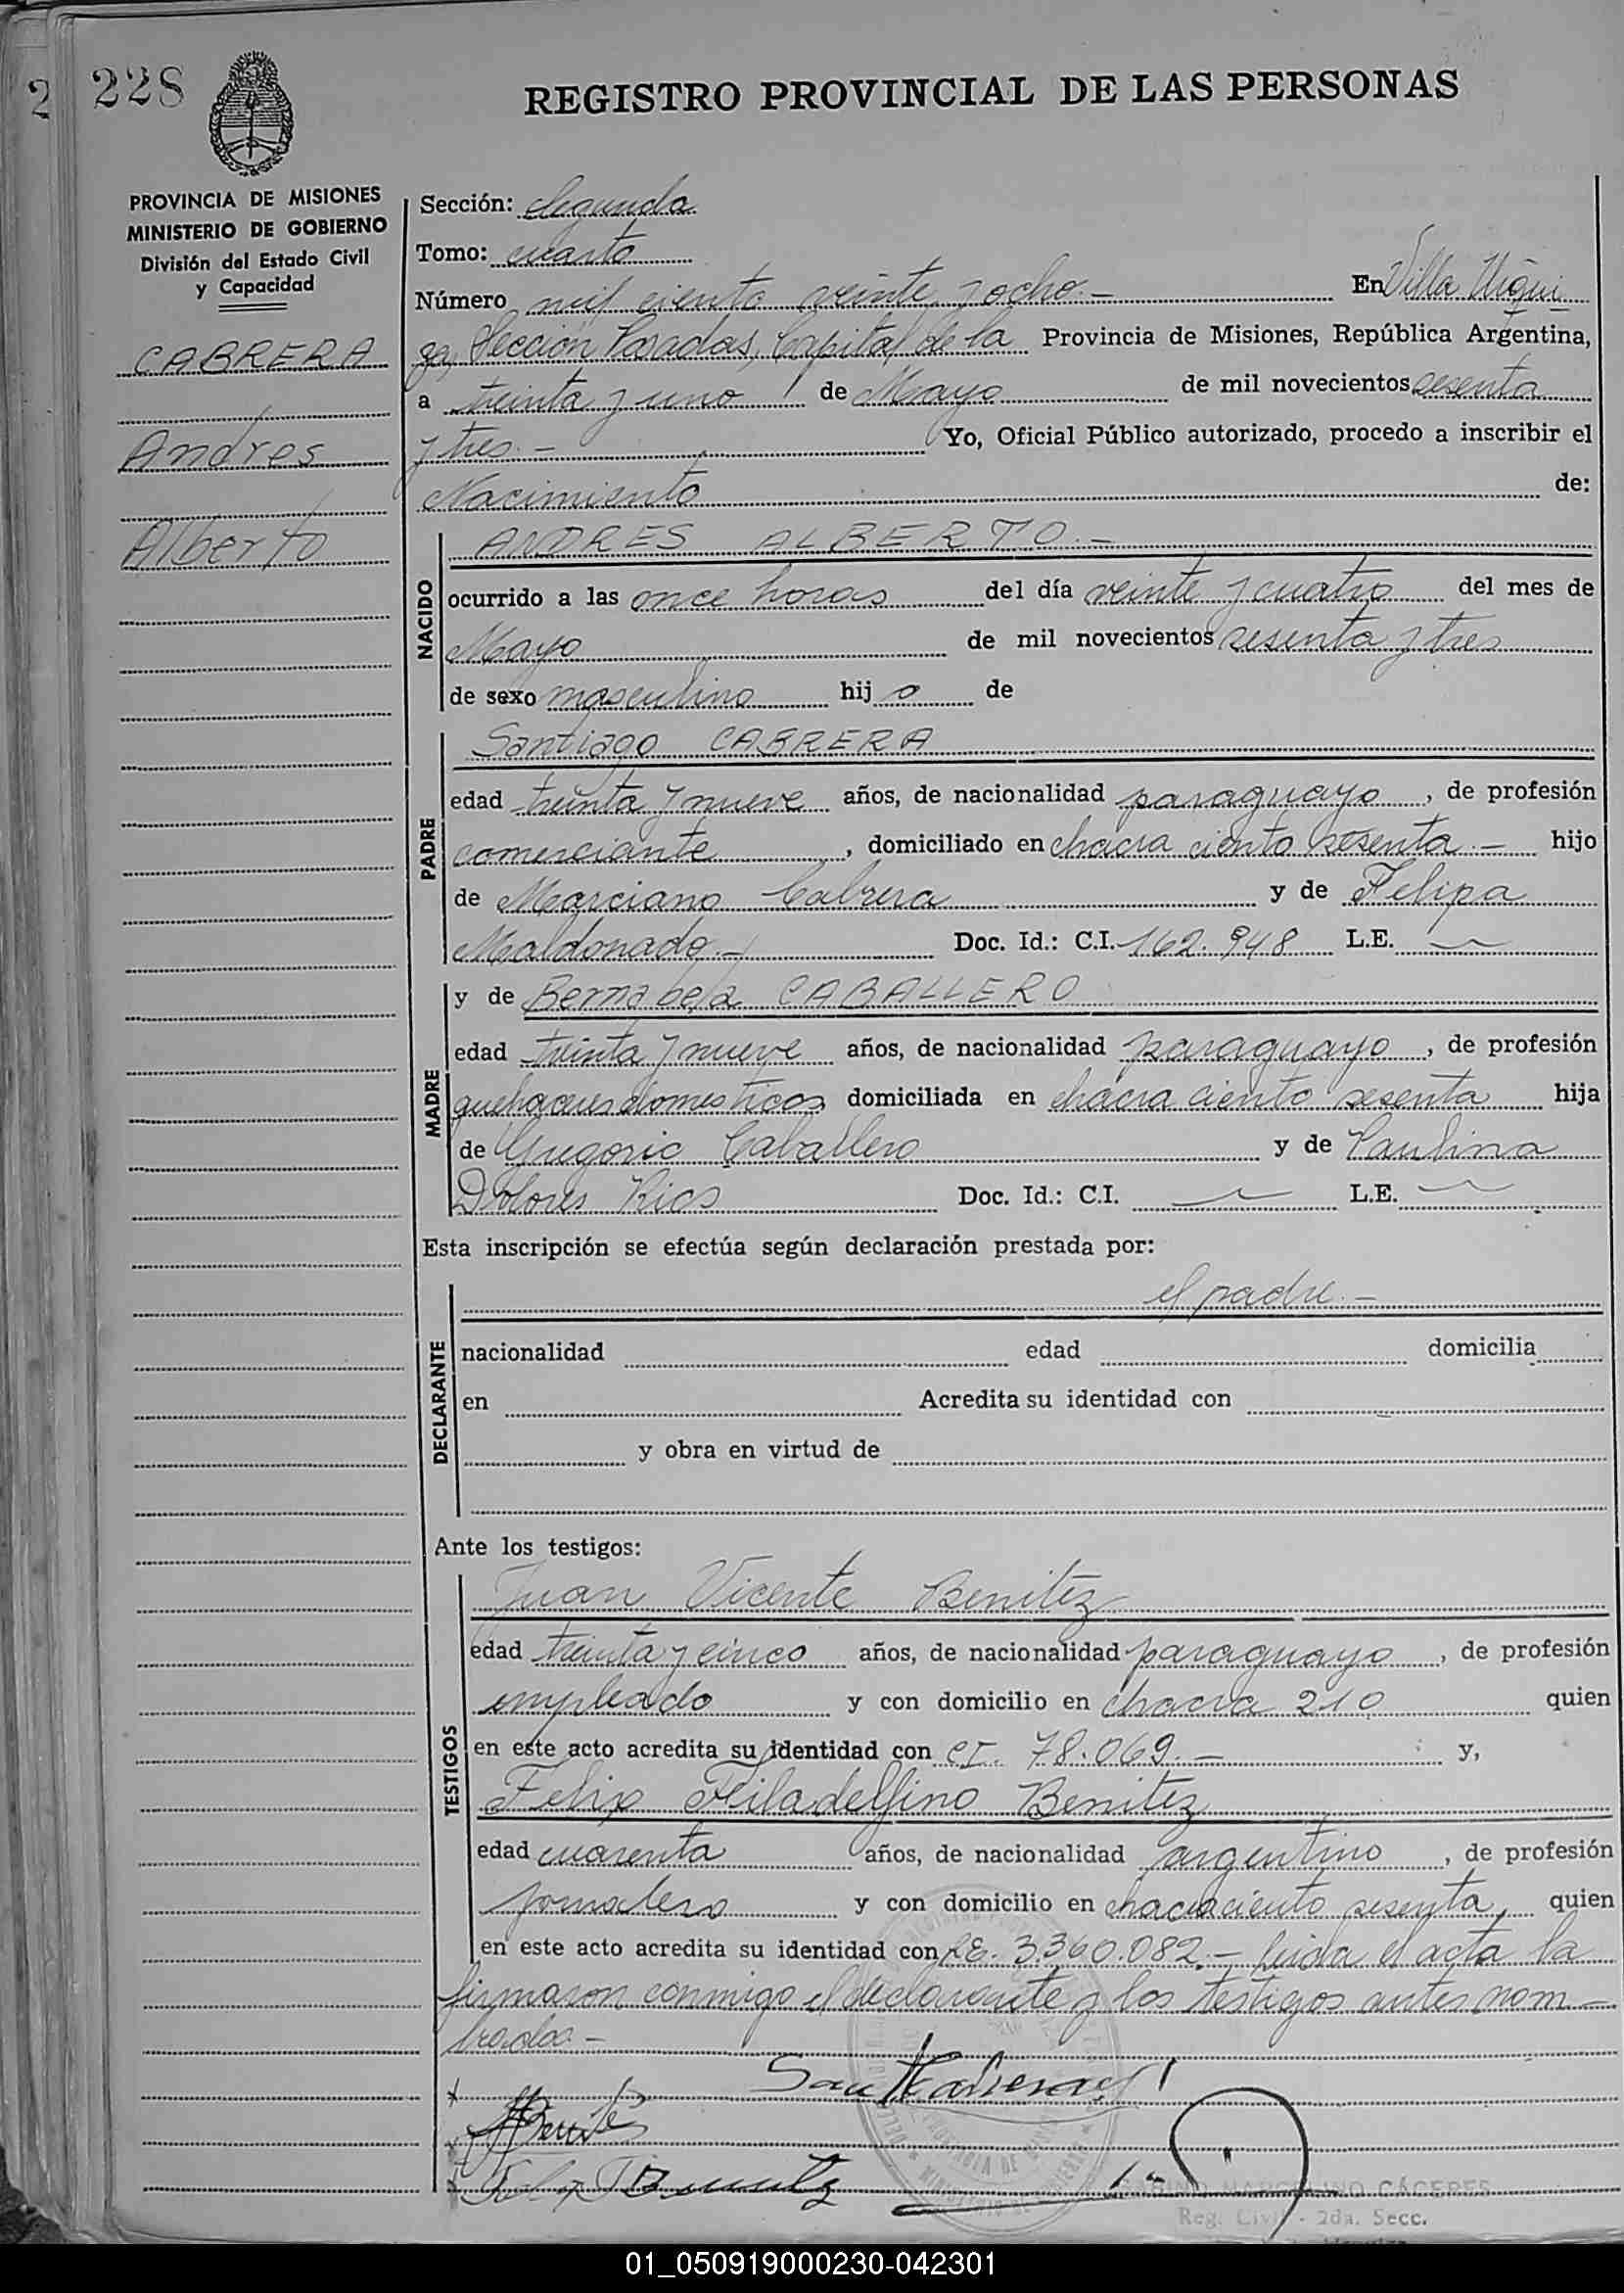 228
REGISTRO PROVINCIAL DE LAS PERSONAS
PROVINCIA DE MISIONES
MINISTERIO DE GOBIERNO
División del Estado Civil
y Capacidad
CABRERA
Andres
Alberto
Sección: Segunda
Tomo: cuarto
Número mil ciento veinte y ocho.- En Villa Urqui
za, Sección Posadas, Capital de la Provincia de Misiones, República Argentina,
a treinta y uno de Mayo de mil novecientos sesenta
y tres.- Yo, Oficial Público autorizado, procedo a inscribir el
Nacimiento de:
NACIDO
ANDRES ALBERTO.-
ocurrido a las once horas del día veinte y cuatro del mes de
Mayo de mil novecientos sesenta y tres
de sexo masculino hij o de
PADRE
Santiago CABRERA
edad treinta y nueve años, de nacionalidad paraguayo, de profesión
comerciante, domiciliado en chacra ciento sesenta.- hijo
de Marciano Cabrera y de Felipa
Maldonado.- Doc. Id.: C.I. 162.948 L.E.
MADRE
y de Bernabela CABALLERO
edad treinta y nueve años, de nacionalidad paraguayo, de profesión
quehaceres domesticos domiciliada en chacra ciento sesenta hija
de Gregorio Caballero y de Paulina
Dolores Rios Doc. Id.: C.I. L.E.
Esta inscripción se efectúa según declaración prestada por:
DECLARANTE
el padre.-
nacionalidad edad domicilia
en Acredita su identidad con
y obra en virtud de
Ante los testigos:
TESTIGOS
Juan Vicente Benitez
edad treinta y cinco años, de nacionalidad paraguayo, de profesión
empleado y con domicilio en chacra 210 quien
en este acto acredita su identidad con C.I. 78.069.- y,
Felix Filadelfino Benitez
edad cuarenta años, de nacionalidad argentino, de profesión
jornalero y con domicilio en chacra ciento sesenta, quien
en este acto acredita su identidad con L.E. 3.360.082.- leida el acta la
firmaron conmigo el declarante y los testigos antes nom-
brados.-
Benitez
Felix Benitez
CÁCERES
Reg. Civil - 2da. Secc.
01_050919000230-042301